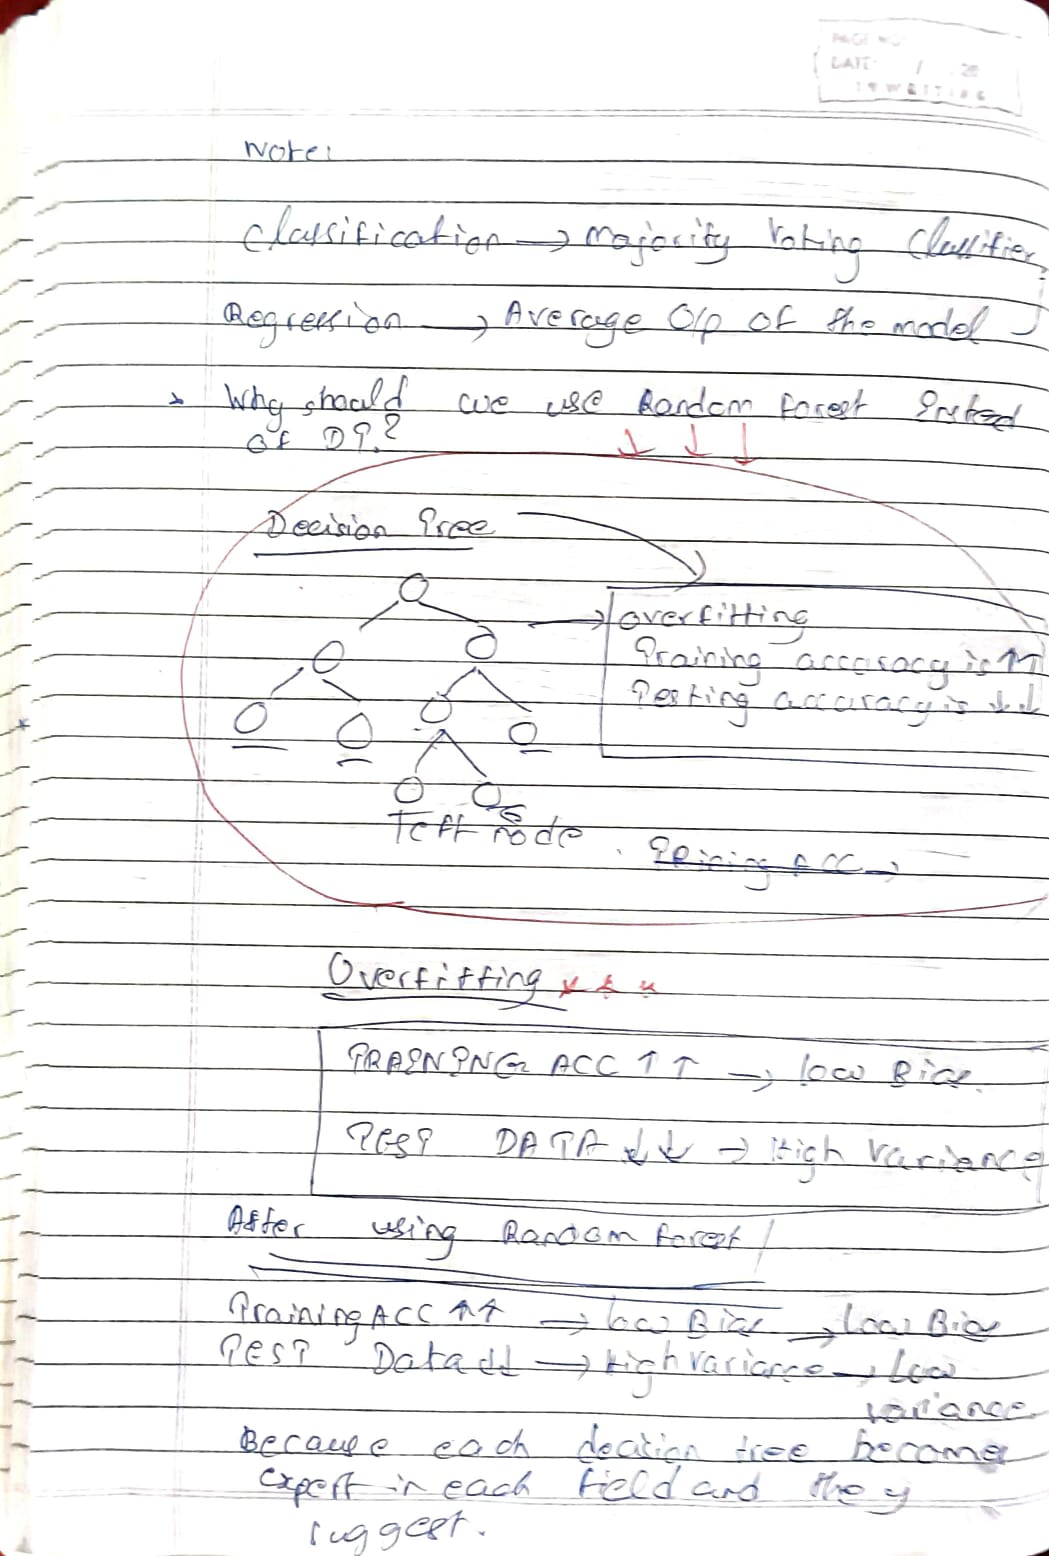 PAGE NO:
DATE: / 20
Note:
Classification → Majority Voting Classifier
Regression → Average O/p of the model
Why should we use Random Forest Insted
of DT?
Decision Tree
→ overfitting
Training accuracy is ↑↑
Testing accuracy is ↓↓
Leff node
Overfitting * * *
TRAINING ACC ↑ ↑ → low Bias
TEST DATA ↓↓ → High Variance
After using Random Forest
Training ACC ↑↑ → low Bias → Low Bias
TEST Data ↓↓ → High variance → Low
variance
Because each decition tree become
expert in each field and they
suggest.